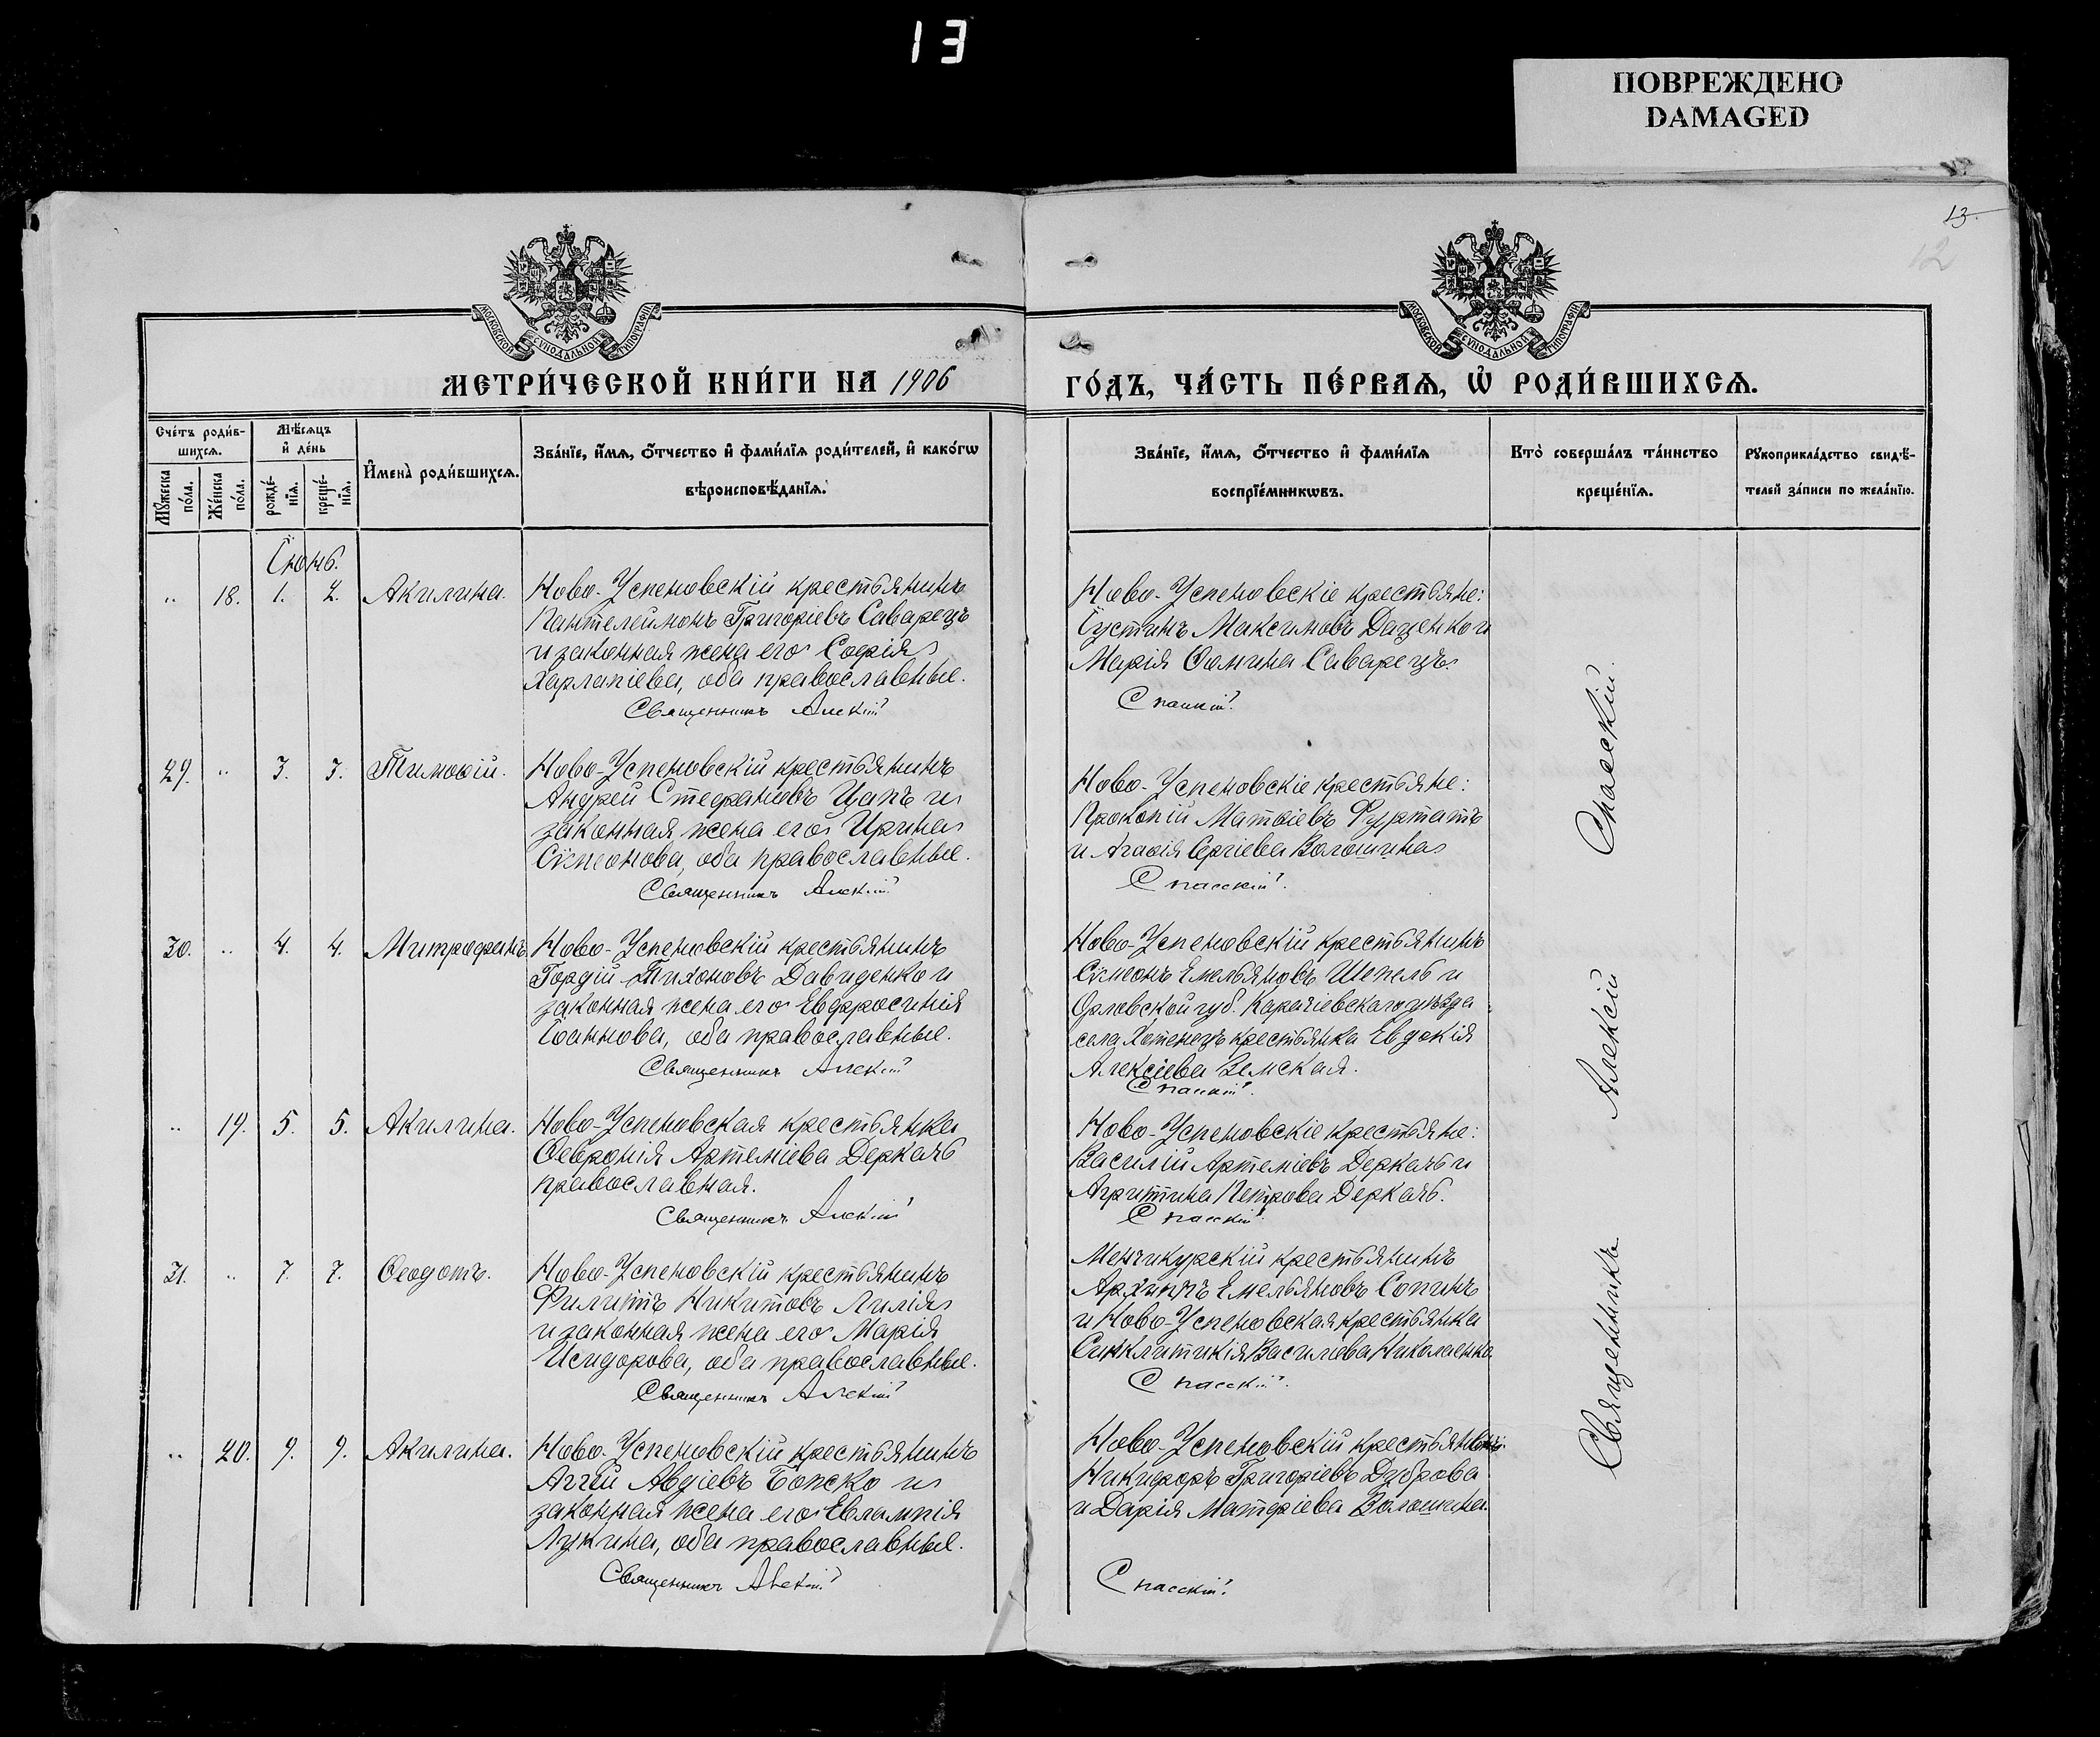 13
ПОВРЕЖДЕНО
DAMAGED
13.
12
МОСКОВСКОЙ СѴНОДАЛЬНОЙ ТИПОГРАФІИ
МОСКОВСКОЙ СѴНОДАЛЬНОЙ ТИПОГРАФІИ
МЕТРИ́ЧЕСКОЙ КНИ́ГИ НА 1906
ГО́ДЪ, ЧА́СТЬ ПЕ́РВАѦ, Ѡ҆ РОДИ́ВШИХСѦ.
Сче́тъ роди́в-
шихсѧ.
Мꙋ́жеска
по́ла.
Же́нска
по́ла.
Мѣ́сѧцъ
и҆ де́нь
рожде́-
нїѧ.
креще́-
нїѧ.
И҆мена̀ роди́вшихсѧ.
Зва́нїе, и҆́мѧ, ѻ҆́тчество и҆ фами́лїѧ роди́телей, и҆ како́гѡ
вѣроисповѣ́данїѧ.
Зва́нїе, и҆́мѧ, ѻ҆́тчество и҆ фами́лїѧ
воспрїе́мникѡвъ.
Кто̀ соверша́лъ та́инство
креще́нїѧ.
Рꙋкоприкла́дство свидѣ́-
телей за́писи по жела́нїю.
Іюнь.
„ 18. 1. 2. Акилина.
Ново-Успеновскій крестьянинъ
Пантелеймонъ Григоріевъ Саварецъ
и законная жена его Софія
Харлапіева, оба православные.
Священникъ Алексій
Ново-Успеновскіе крестьяне:
Іустинъ Максимовъ Даценко и
Марія Ѳомина Саварецъ.
Спасскій.
29. „ 3. 3. Тимоѳій.
Ново-Успеновскій крестьянинъ
Андрей Стефановъ Цапъ и
законная жена его Ирина
Сѵмеонова, оба православные.
Священникъ Алексій
Ново-Успеновскіе крестьяне:
Прокопій Матѳіевъ Фурматъ
и Агаѳія Сергіева Волошина
Спасскій.
30. „ 4. 4. Митрофанъ.
Ново-Успеновскій крестьянинъ
Гордій Тихоновъ Давиденко и
законная жена его Евфросинія
Іоаннова, оба православные.
Священникъ Алексій
Ново-Успеновскій крестьянинъ
Сѵмеонъ Емельяновъ Шепель и
Орловской губ. Карачевскаго уѣзда
села Хотенецъ крестьянка Евдокія
Алексіева Земская.
Спасскій.
„ 19. 5. 5. Акилина.
Ново-Успеновская крестьянка
Ѳевронія Артеміева Деркачь
православная.
Священникъ Алексій
Ново-Успеновскіе крестьяне:
Василій Артеміевъ Деркачь и
Агриппина Петрова Деркачь.
Спасскій.
31. „ 7. 7. Ѳеодотъ.
Ново-Успеновскій крестьянинъ
Филиппъ Никитовъ Лилія
и законная жена его Марія
Исидорова, оба православные.
Священникъ Алексій
Менчикурскій крестьянинъ
Архиппъ Емельяновъ Сопинъ
и Ново-Успеновская крестьянка
Синклитикія Василева Николаенко
Спасскій.
„ 20. 9. 9. Акилина.
Ново-Успеновскій крестьянинъ
Аггей Авдіевъ Божко и
законная жена его Евлампія
Лукина, оба православные.
Священникъ Алексій
Ново-Успеновскій крестьянинъ
Никифоръ Григоріевъ Дуброва
и Дарія Матфіева Волошина.
Спасскій.
Священникъ Алексій Спасскій.